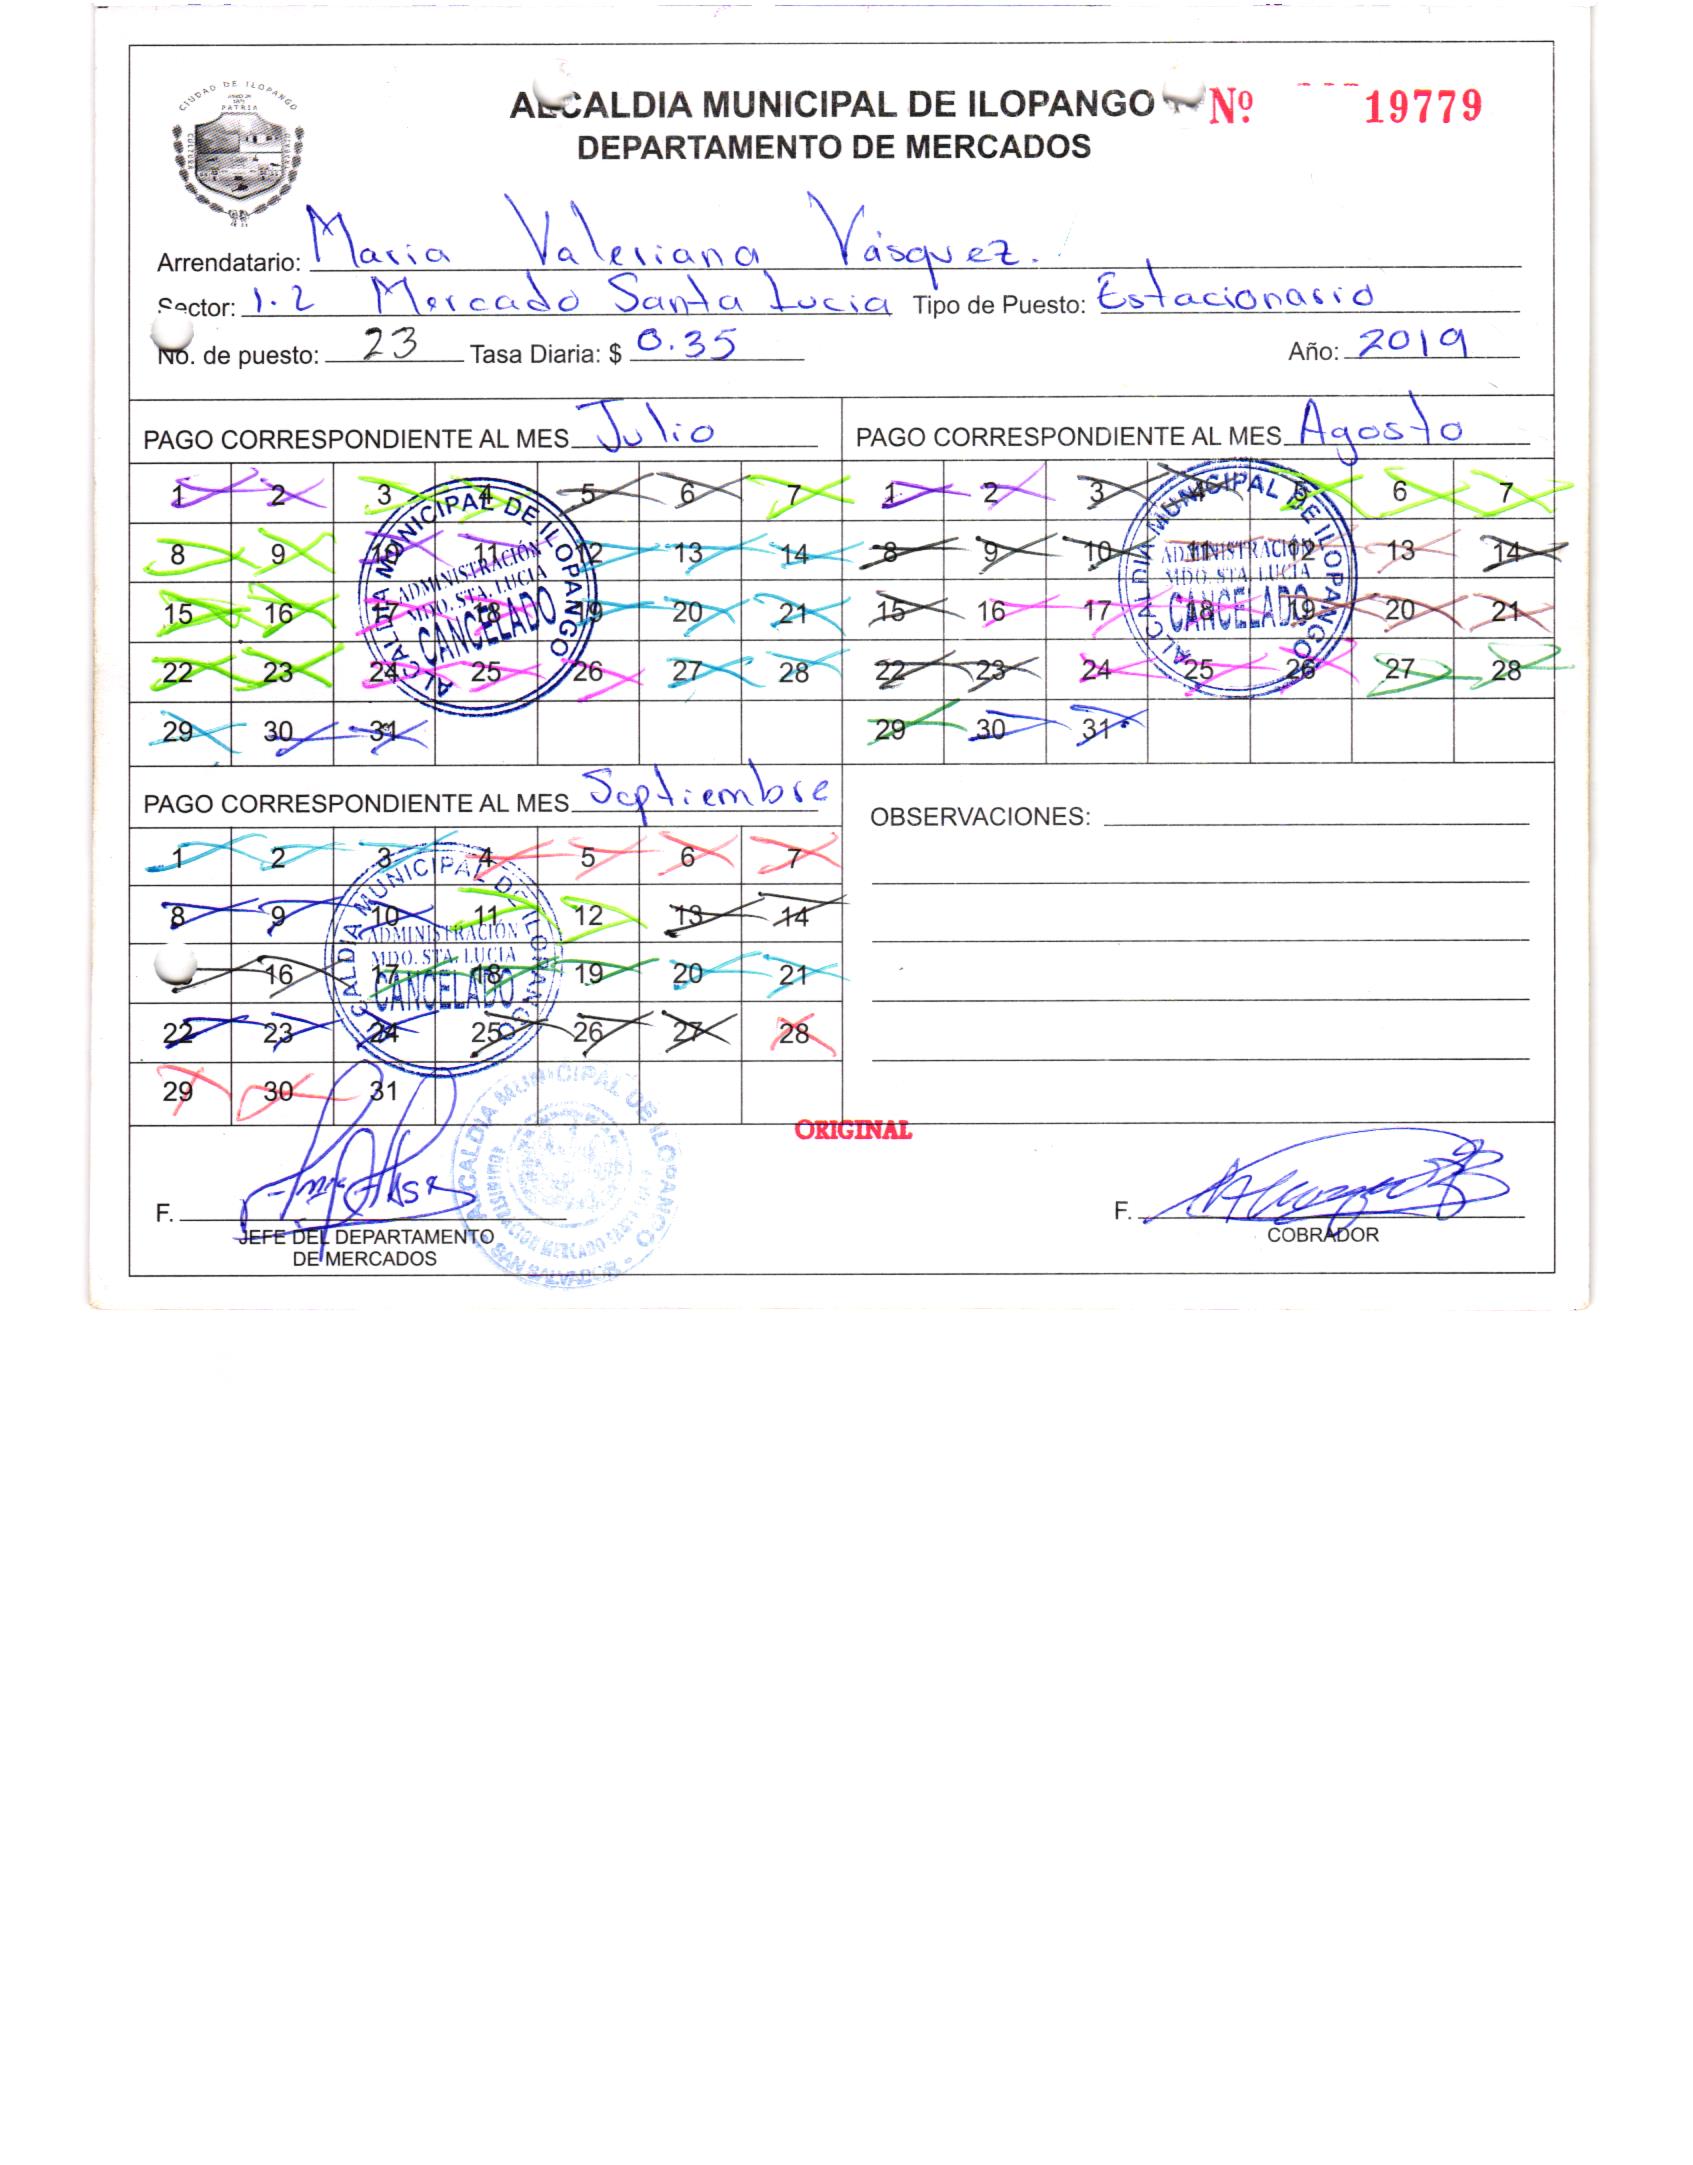 CIUDAD DE ILOPANGO
PATRIA
ALCALDIA MUNICIPAL DE ILOPANGO Nº 19779
DEPARTAMENTO DE MERCADOS
Arrendatario: Maria Valeriana Vásquez.
Sector: 1.2 Mercado Santa Lucia Tipo de Puesto: Estacionario
No. de puesto: 23 Tasa Diaria: $ 0.35 Año: 2019
PAGO CORRESPONDIENTE AL MES Julio
1 2 3 4 5 6 7
8 9 10 11 12 13 14
15 16 17 18 19 20 21
22 23 24 25 26 27 28
29 30 31
ALCALDIA MUNICIPAL DE ILOPANGO
ADMINISTRACIÓN
MDO. STA. LUCIA
CANCELADO
PAGO CORRESPONDIENTE AL MES Agosto
1 2 3 4 5 6 7
8 9 10 11 12 13 14
15 16 17 18 19 20 21
22 23 24 25 26 27 28
29 30 31
ALCALDIA MUNICIPAL DE ILOPANGO
ADMINISTRACIÓN
MDO. STA. LUCIA
CANCELADO
PAGO CORRESPONDIENTE AL MES Septiembre
1 2 3 4 5 6 7
8 9 10 11 12 13 14
16 17 18 19 20 21
22 23 24 25 26 27 28
29 30 31
ALCALDIA MUNICIPAL DE ILOPANGO
ADMINISTRACIÓN
MDO. STA. LUCIA
CANCELADO
OBSERVACIONES:
ORIGINAL
F.
JEFE DEL DEPARTAMENTO
DE MERCADOS
ALCALDIA MUNICIPAL DE ILOPANGO
SAN SALVADOR
F.
COBRADOR